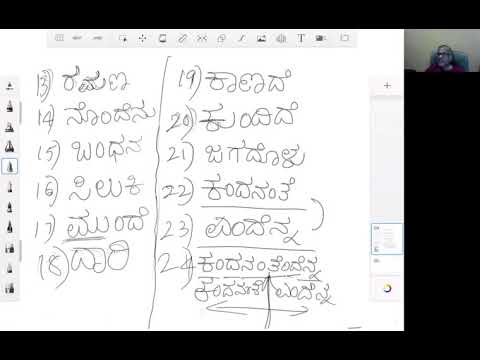 13) ರಮಣ
14) ನೊಂದೆನು
15) ಬಂಧನ
16) ಸಿಲುಕಿ
17) ಮುಂದೆ
18) ದಾರಿ
19) ಕಾಣದೆ
20) ಕುಂದಿದೆ
21) ಜಗದೊಳು
22) ಕಂದನಂತೆ
23) ಎಂದೆನ್ನ
24) ಕಂದನಂತೆಂದೆನ್ನ
ಕಂದನಂತೆ ಎಂದೆನ್ನ